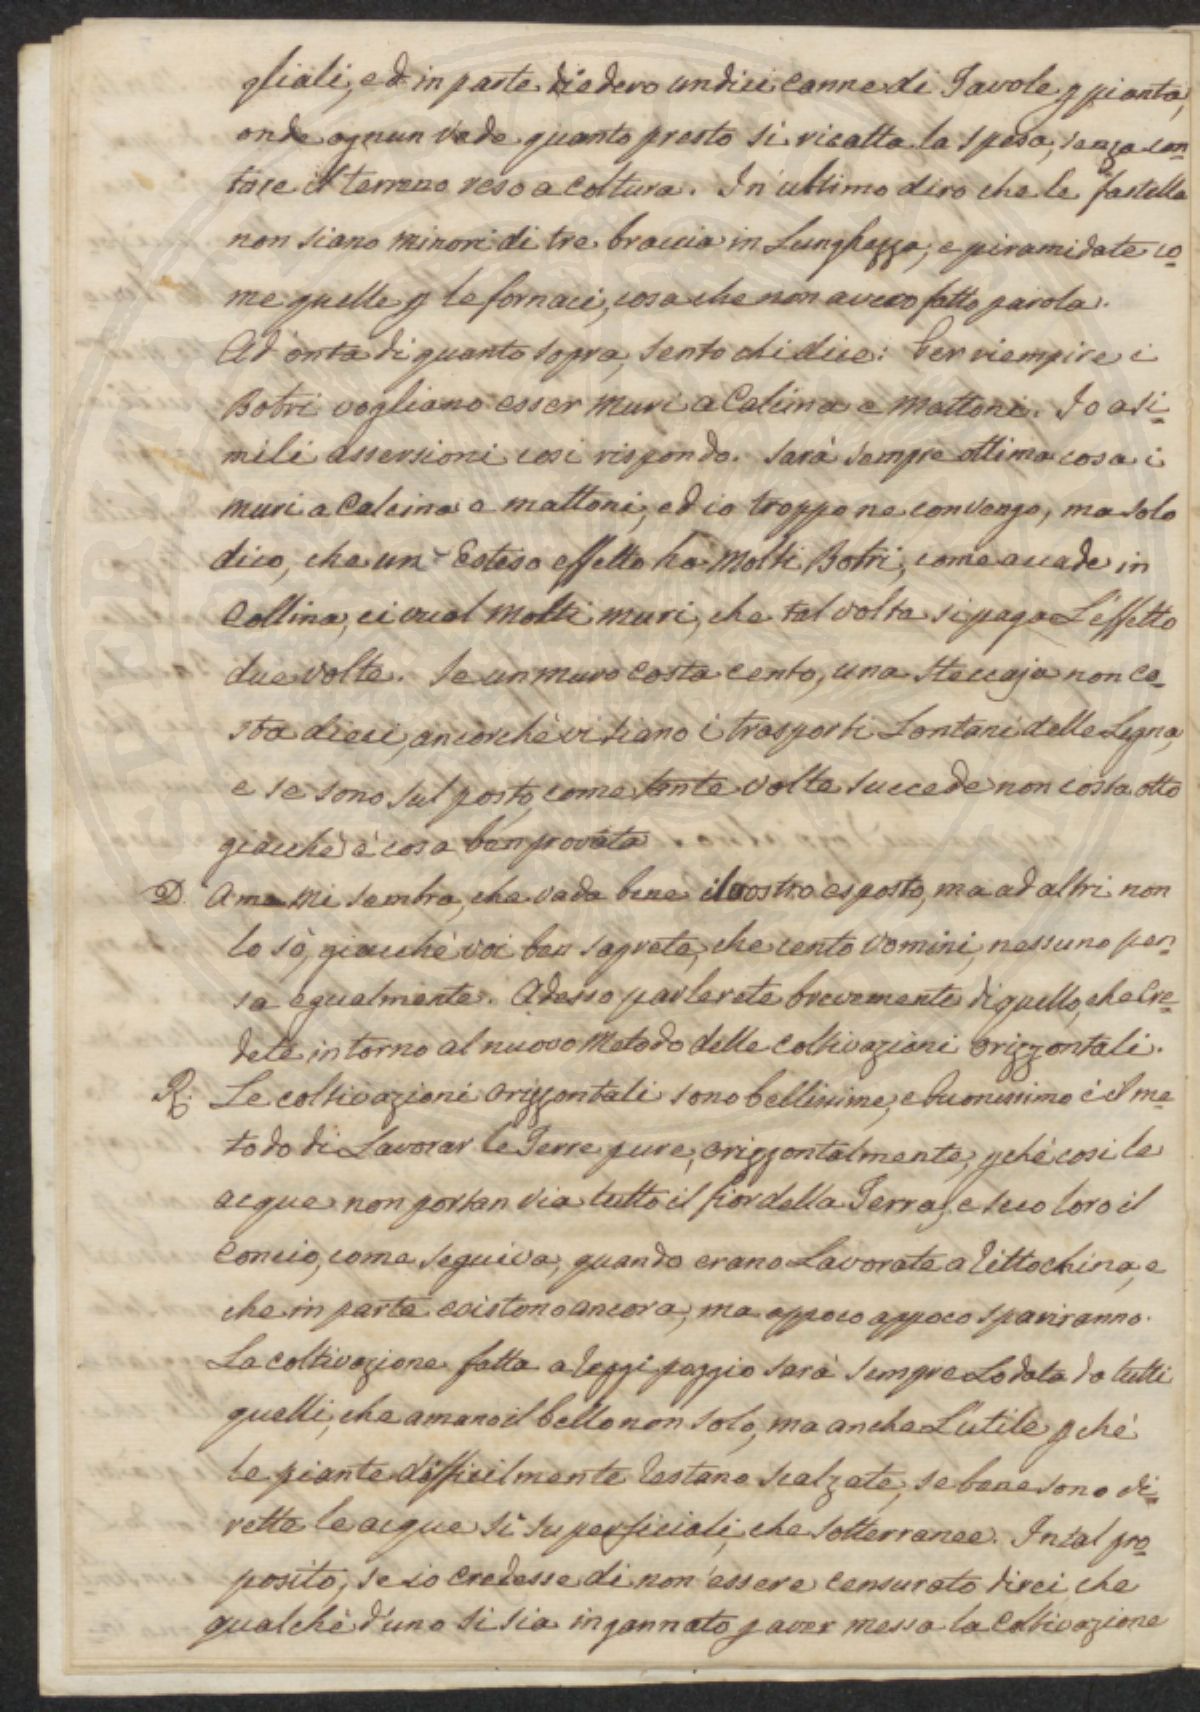 gliali, ed in parte diedero undici canne di Tavole p pianta,
onde ognun vede quanto presto si ricatta la spesa, senza con
tare il terreno reso a coltura. In ultimo diro che le fastella
non siano minori di tre braccia in Lunghezza, e piramidate co
me quelle p le fornaci, cosa che non avevo fatto parola.
Ad onta di quanto sopra, sento chi dice: Per riempire i
Botri vogliono esser muri a Calcina e Mattoni. Io a si
mili asserzioni cosi rispondo. Sarà sempre ottima cosa i
muri a Calcina e mattoni, ed io troppo ne convengo, ma solo
dico, che un Esteso effetto ha Molti Botri, come accade in
Collina, ci vuol Molti muri, che tal volta si paga L'effetto
due volte. Se un muro costa cento, una Steccaja non co
sta dieci, ancorchè vi siano i trasporti Lontani delle Legna,
e se sono sul posto, come tante volte succede non costa otto
giacchè è cosa ben provata
D. A me mi sembra, che vada bene il vostro esposto, ma ad altri non
lo sò, giacchè voi ben sapete, che cento uomini, nessuno pen
sa egualmente. Adesso parlerete brevemente di quello, che cre
dete intorno al nuovo Metodo delle coltivazioni orizzontali.
R. Le coltivazioni orizzontali sono bellissime, e buonissimo è il me
todo di Lavorar le Terre pure, orizzontalmente, pchè cosi le
acque non portan via tutto il fior della Terra, e seco loro il
Concio, come seguiva, quando erano Lavorate a rittochina, e
che in parte esistono ancora, ma appoco appoco spariranno.
La coltivazione fatta a reggi poggio sarà sempre Lodata da tutti
quelli, che amano il bello non solo, ma anche L'utile pchè
le piante difficilmente restano scalzate, se bene sono di
rette le acque sì superficiali, che sotterranee. In tal pro
posito, se io credesse di non essere censurato direi che
qualchè d'uno si sia ingannato p aver messa la Coltivazione